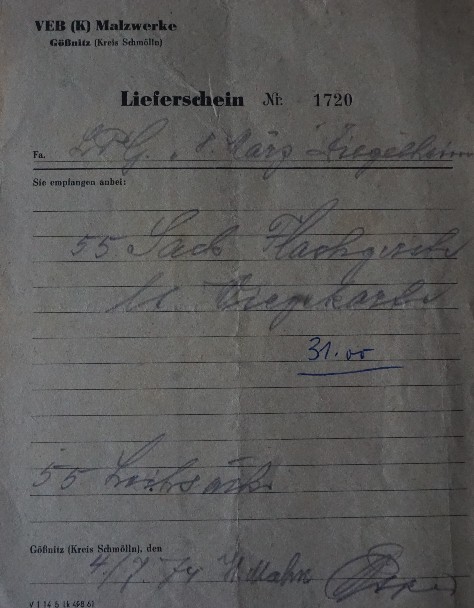 VEB (K) Malzwerke
Gößnitz (Kreis Schmölln)
Lieferschein Nr. 1720
Fa. LPG. "8. März Ziegelheim
Sie empfangen anbei:
55 Sack
lt. Wiegekarte
31.00
55 Leihsäcke
Gößnitz (Kreis Schmölln), den
4/7 74 Mahn